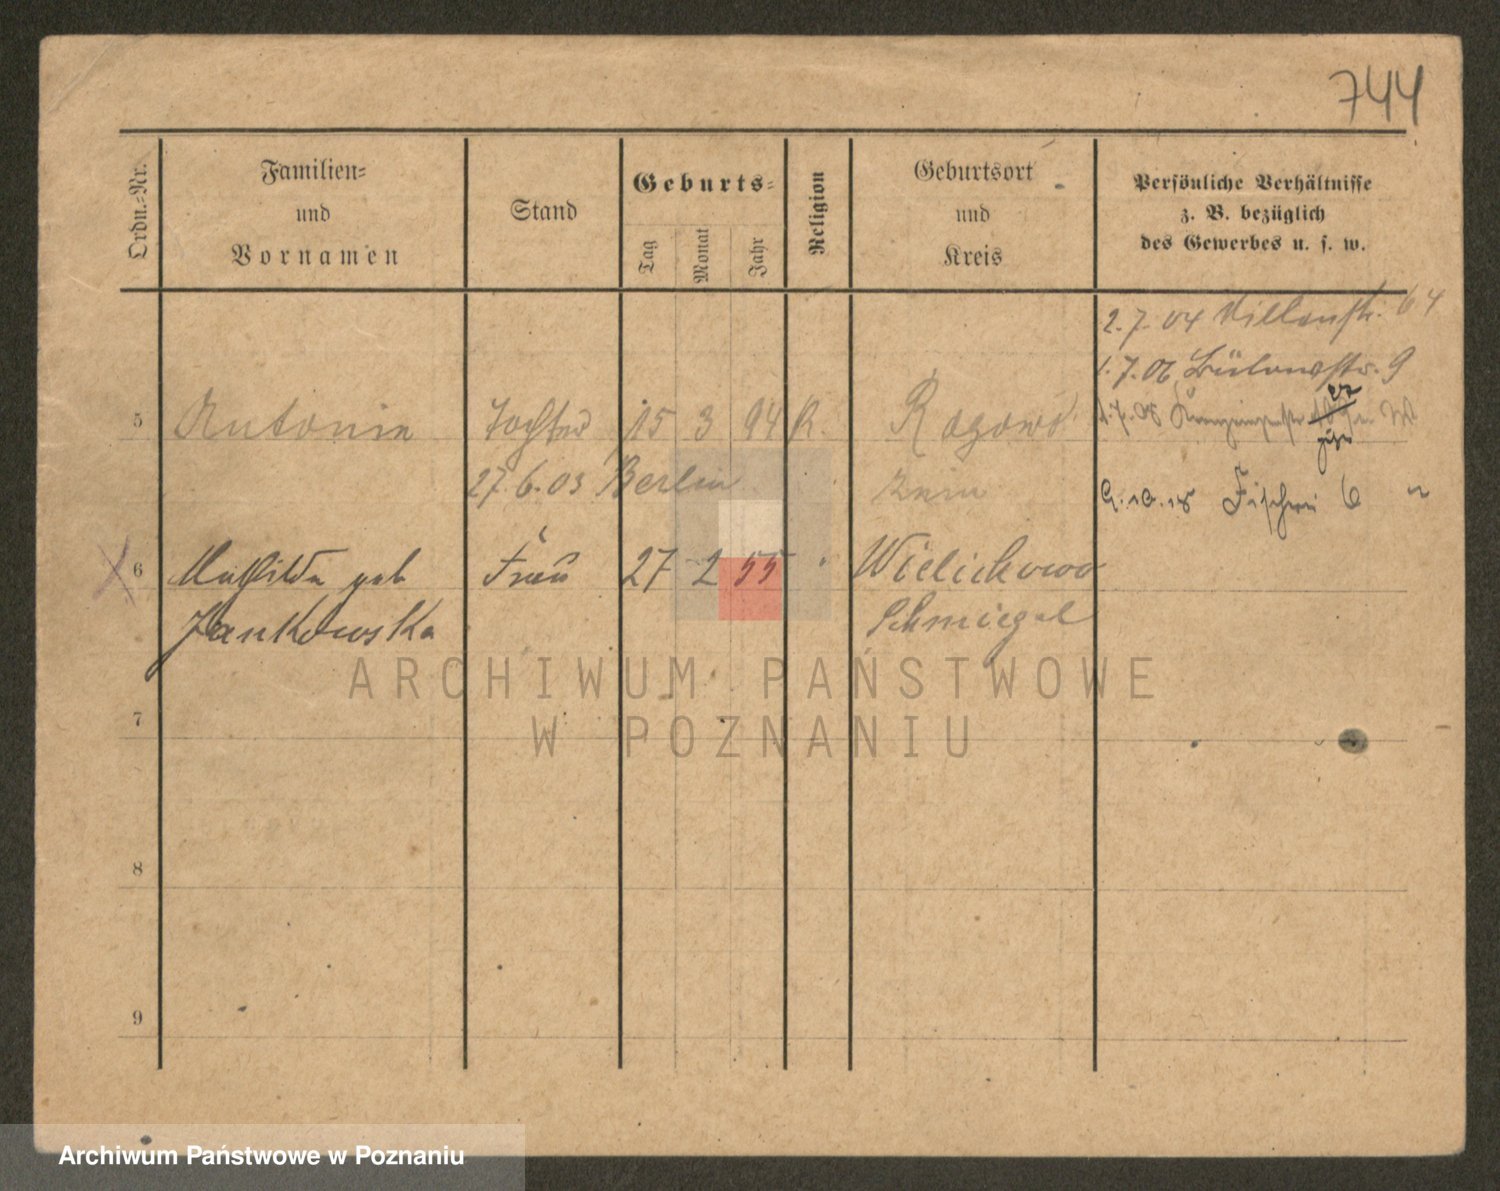 744
Ordn.-Nr.
Familien-
und
Vornamen
Stand
Geburts-
Tag
Monat
Jahr
Religion
Geburtsort
und
Kreis
Persönliche Verhältnisse
z. B. bezüglich
des Gewerbes u. s. w.
2.7.04 Villenstr. 64
1.7.06 Bülowstr. 9
5 Antonie Tochter 15 3 94 K. Rogowo
27.6.03 Berlin Znin
9.10.18 Fischerei 6
6 Mathilde geb Frau 27 2 55 " Wielichowo
Jankowska Schmiegel
ARCHIWUM PAŃSTWOWE
W POZNANIU
7
8
9
Archiwum Państwowe w Poznaniu